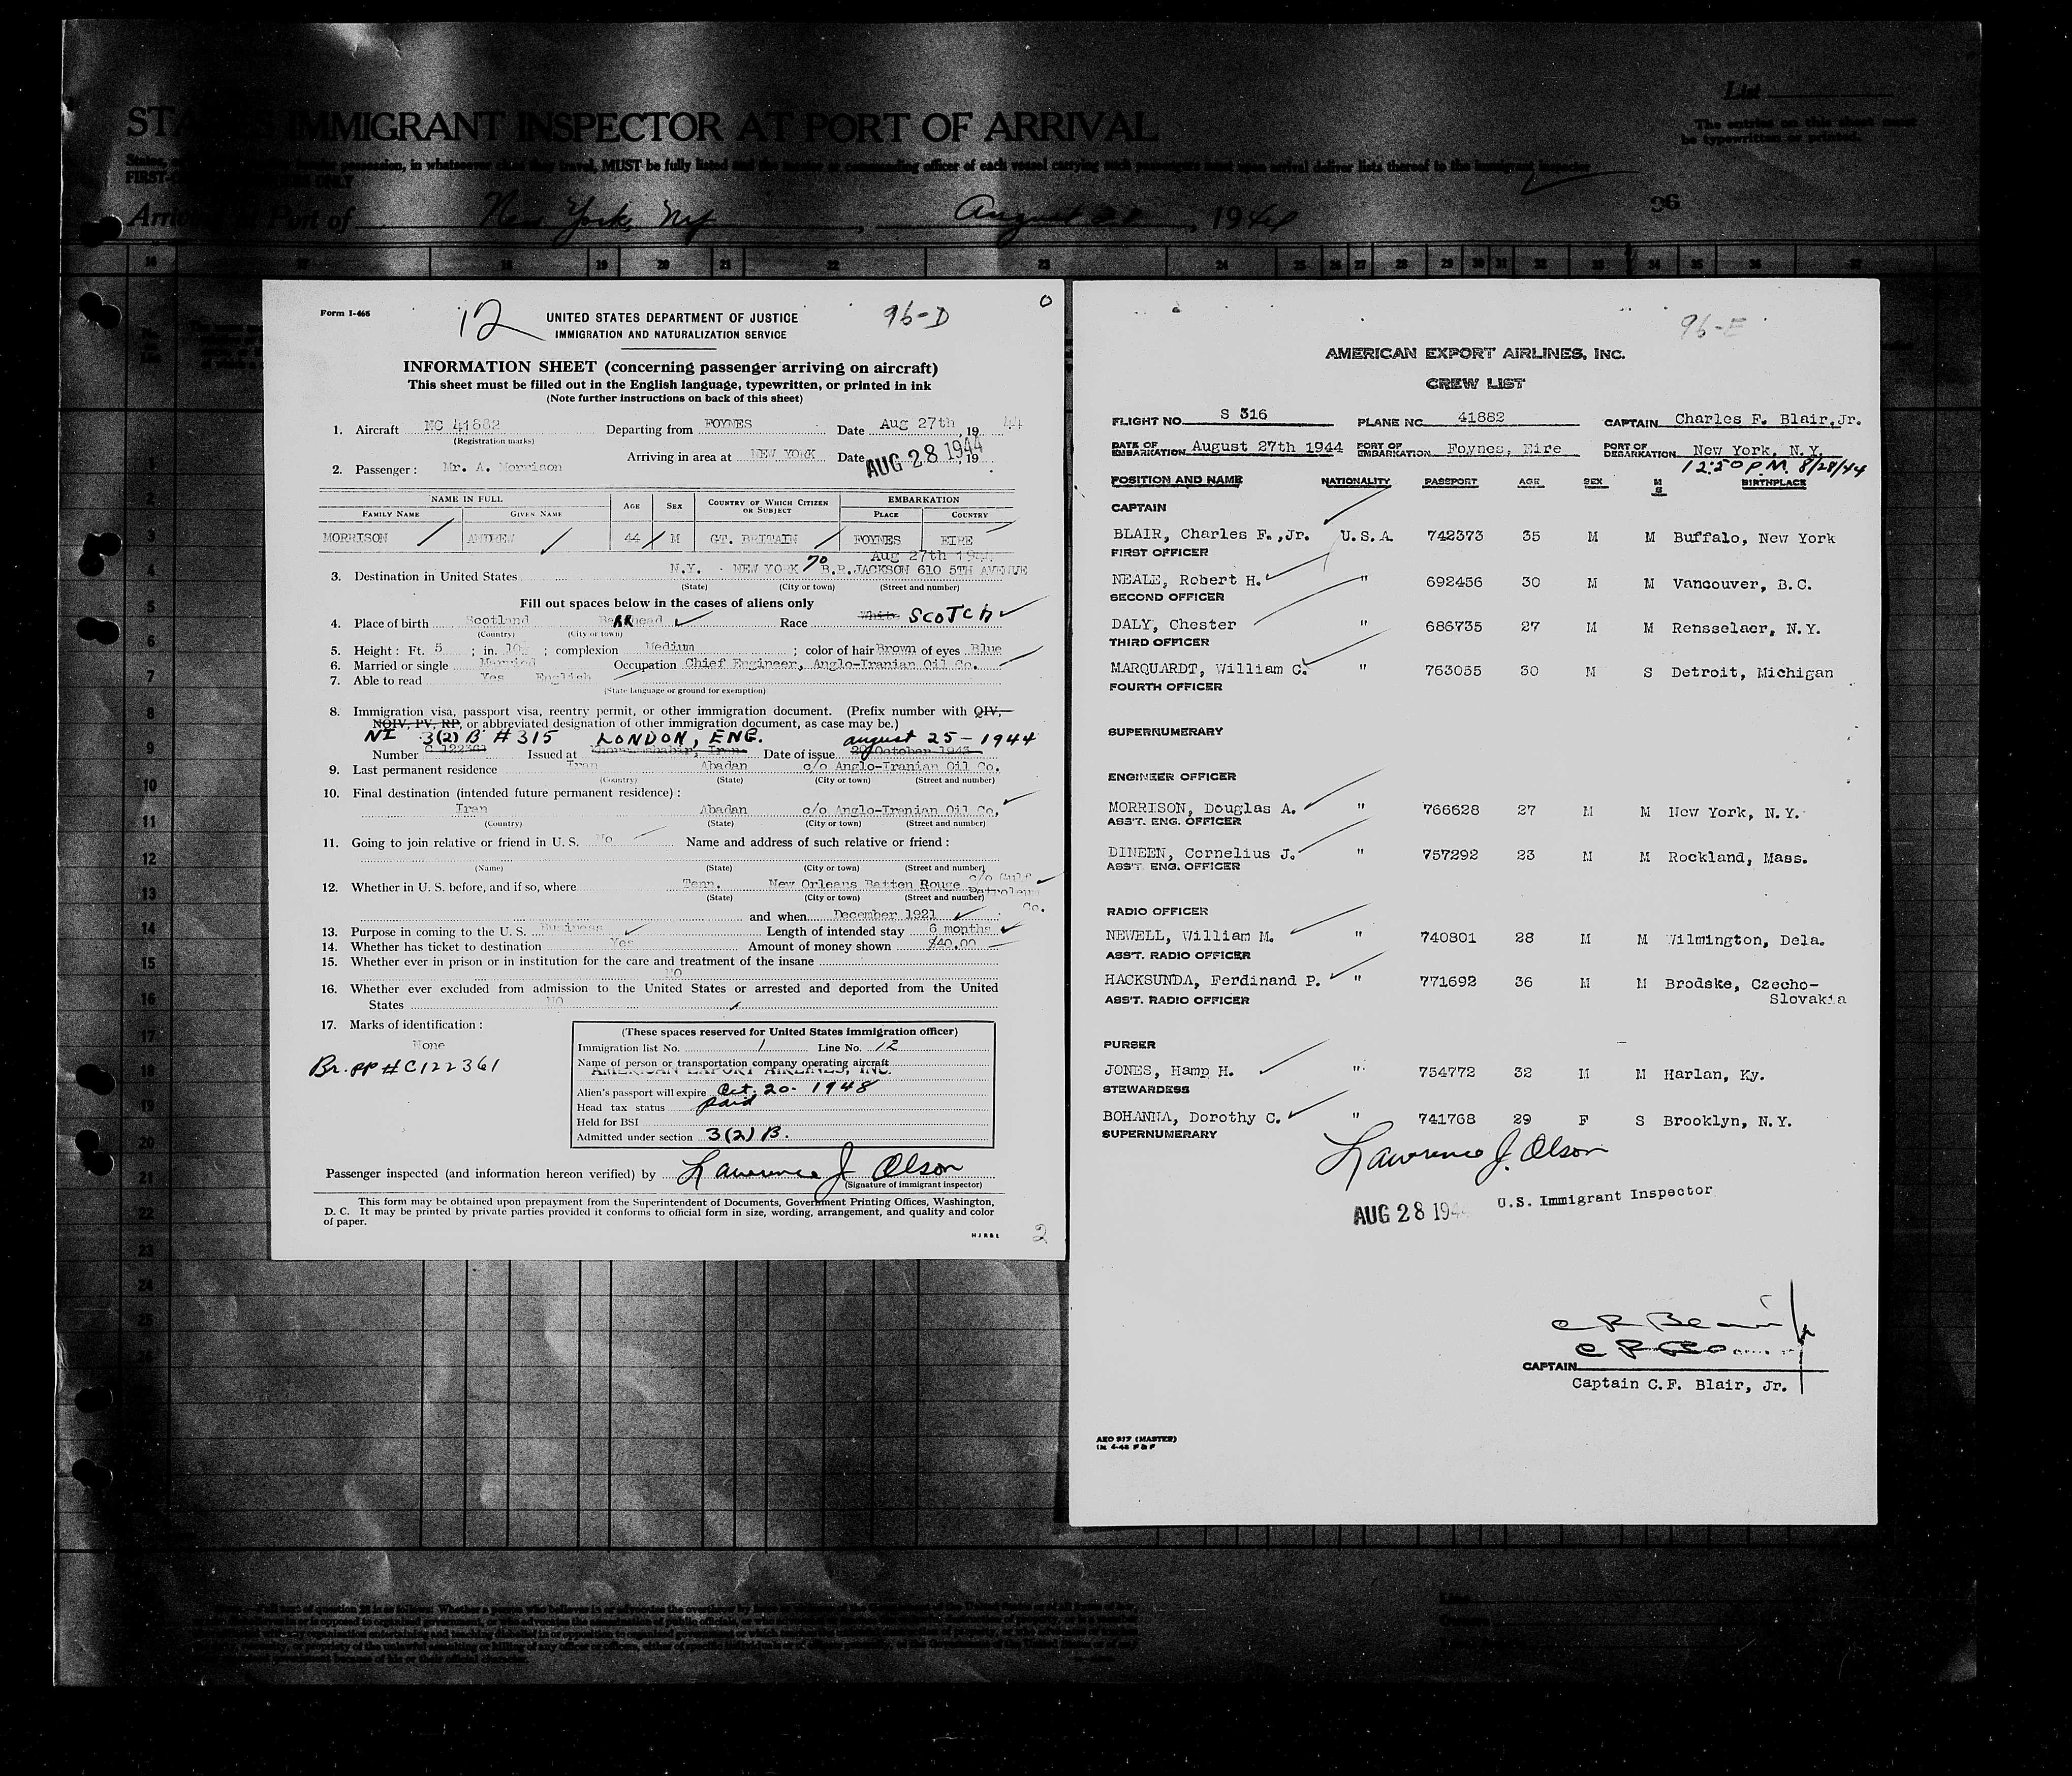 List
IMMIGRANT INSPECTOR AT PORT OF ARRIVAL
The entries on this sheet must
be typewritten or printed.
possession, in whatsoever class they travel, MUST be fully listed and the master or commanding officer of each vessel carrying such passengers must upon arrival deliver lists thereof to the immigrant inspector
Port of New York, NY, August 28, 1944
96
16 17 18 19 20 21 22 23 24 25 26 27 28 29 30 31 32 33 34 35 36 37
1
2
3
4
5
6
7
8
9
10
11
12
13
14
15
16
17
18
19
20
21
22
23
24
25
Form I-466
12
96-D
0
UNITED STATES DEPARTMENT OF JUSTICE
IMMIGRATION AND NATURALIZATION SERVICE
INFORMATION SHEET (concerning passenger arriving on aircraft)
This sheet must be filled out in the English language, typewritten, or printed in ink
(Note further instructions on back of this sheet)
1. Aircraft NC 41882 Departing from FOYNES Date Aug 27th, 19 44
(Registration marks)
Arriving in area at NEW YORK Date AUG 28 1944, 19
2. Passenger: Mr. A. Morrison
NAME IN FULL AGE SEX COUNTRY OF WHICH CITIZEN OR SUBJECT EMBARKATION
FAMILY NAME GIVEN NAME PLACE COUNTRY
MORRISON ANDREW 44 M GT. BRITAIN FOYNES EIRE
Aug 27th 1944
3. Destination in United States N.Y. NEW YORK % B.R.JACKSON 610 5TH AVENUE
(State) (City or town) (Street and number)
Fill out spaces below in the cases of aliens only
4. Place of birth Scotland Barrhead Race White SCOTCH
(Country) (City or town)
5. Height: Ft. 5 ; in. 10 ; complexion Medium ; color of hair Brown of eyes Blue
6. Married or single Married Occupation Chief Engineer, Anglo-Iranian Oil Co.
7. Able to read Yes English
(State language or ground for exemption)
8. Immigration visa, passport visa, reentry permit, or other immigration document. (Prefix number with QIV,
NQIV, PV, RP, or abbreviated designation of other immigration document, as case may be.)
NI 3(2) B #315 LONDON, ENG. august 25-1944
Number C 122361 Issued at Khorramshahr, Iran Date of issue 20 October 1943
9. Last permanent residence Iran Abadan c/o Anglo-Iranian Oil Co.
(Country) (State) (City or town) (Street and number)
10. Final destination (intended future permanent residence):
Iran Abadan c/o Anglo-Iranian Oil Co.
(Country) (State) (City or town) (Street and number)
11. Going to join relative or friend in U. S. No Name and address of such relative or friend:
(Name) (State) (City or town) (Street and number)
12. Whether in U. S. before, and if so, where Tenn. New Orleans Batten Rouge c/o Gulf Petroleum Co.
(State) (City or town) (Street and number)
and when December 1921
13. Purpose in coming to the U. S. Business Length of intended stay 6 months
14. Whether has ticket to destination Yes Amount of money shown $40.00
15. Whether ever in prison or in institution for the care and treatment of the insane
NO
16. Whether ever excluded from admission to the United States or arrested and deported from the United
States NO
17. Marks of identification:
None
Br. PP #C122361
(These spaces reserved for United States immigration officer)
Immigration list No. 1 Line No. 12
Name of person or transportation company operating aircraft
AMERICAN EXPORT AIRLINES, INC.
Alien's passport will expire Oct. 20- 1948
Head tax status paid
Held for BSI
Admitted under section 3(2) B.
Passenger inspected (and information hereon verified) by Lawrence J. Olson
(Signature of immigrant inspector)
This form may be obtained upon prepayment from the Superintendent of Documents, Government Printing Offices, Washington,
D. C. It may be printed by private parties provided it conforms to official form in size, wording, arrangement, and quality and color
of paper.
2
96-E
AMERICAN EXPORT AIRLINES, INC.
CREW LIST
FLIGHT NO. S 316 PLANE NO. 41882 CAPTAIN Charles F. Blair, Jr.
DATE OF EMBARKATION August 27th 1944 PORT OF EMBARKATION Foynes, Eire PORT OF DEBARKATION New York, N.Y.
12:50 P.M. 8/28/44
POSITION AND NAME NATIONALITY PASSPORT AGE SEX M S BIRTHPLACE
CAPTAIN
BLAIR, Charles F.,Jr. U.S.A. 742373 35 M M Buffalo, New York
FIRST OFFICER
NEALE, Robert H. " 692456 30 M M Vancouver, B.C.
SECOND OFFICER
DALY, Chester " 686735 27 M M Rensselaer, N.Y.
THIRD OFFICER
MARQUARDT, William C. " 763055 30 M S Detroit, Michigan
FOURTH OFFICER
SUPERNUMERARY
ENGINEER OFFICER
MORRISON, Douglas A. " 766628 27 M M New York, N.Y.
ASS'T. ENG. OFFICER
DINEEN, Cornelius J. " 757292 23 M M Rockland, Mass.
ASS'T. ENG. OFFICER
RADIO OFFICER
NEWELL, William M. " 740801 28 M M Wilmington, Dela.
ASS'T. RADIO OFFICER
HACKSUNDA, Ferdinand P. " 771692 36 M M Brodske, Czecho-
Slovakia
ASS'T. RADIO OFFICER
PURSER
JONES, Hamp H. " 754772 32 M M Harlan, Ky.
STEWARDESS
BOHANNA, Dorothy C. " 741768 29 F S Brooklyn, N.Y.
SUPERNUMERARY
Lawrence J. Olson
AUG 28 1944 U.S. Immigrant Inspector
CAPTAIN
Captain C.F. Blair, Jr.
AEO 917 (MASTER)